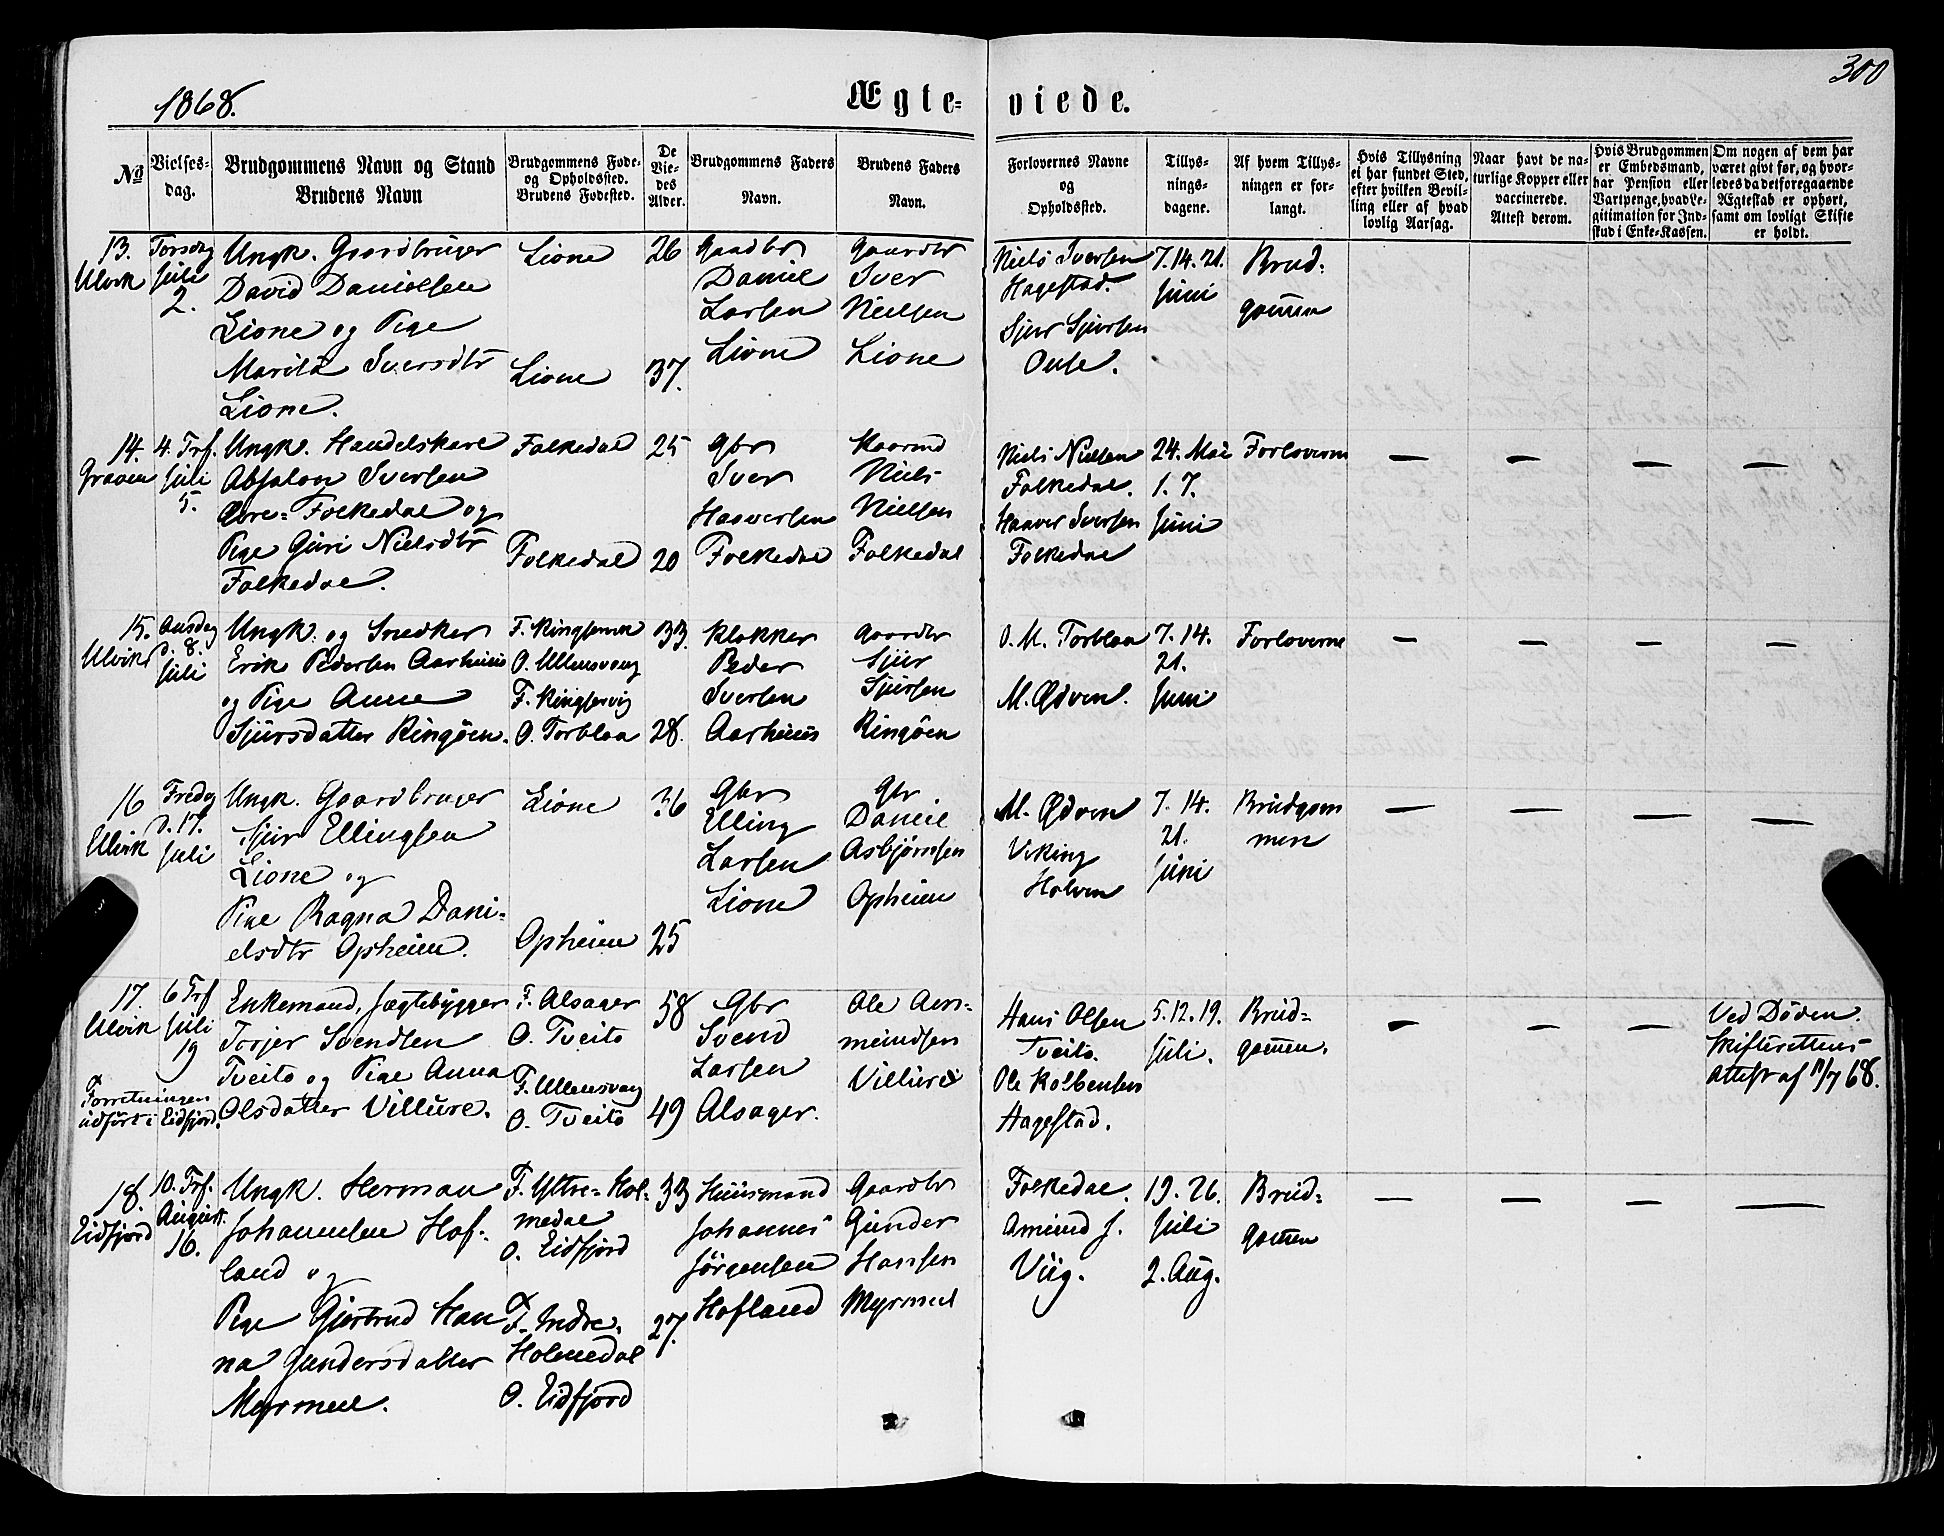 1868.
Ægte-
viede.
300
No
Vielses-
dag.
Brudgommens Navn og Stand
Brudens Navn
Brudgommens Føde-
og Opholdssted.
Brudens Fødested.
De
Vie-
des
Alder.
Brudgommens Faders
Navn.
Brudens Faders
Navn.
Forlovernes Navne
og
Opholdssted.
Tillys-
nings-
dagene.
Af hvem Tillys-
ningen er for-
langt.
Hvis Tillysning
ei har fundet Sted,
efter hvilken Bevil-
ling eller af hvad
lovlig Aarsag.
Naar havt de na-
turlige Kopper eller
vaccinerede.
Attest derom.
Hvis Brudgommen
er Embedsmand,
har Pension eller
Vartpenge, hvad Le-
gitimation for Ind-
skud i Enke-Kassen.
Om nogen af dem har
været givt før, og hvor-
ledes da det foregaaende
Ægteskab er ophørt,
samt om lovligt Skifte
er holdt.
13.
Ulvik
Torsdag
Juli
2.
Ungk. Gaardbruger
David Danielsen
Lione og Pige
Marita Iversdtr
Lione.
Lione
Lione
26
37.
Gaardbr
Daniel
Larsen
Lione
Gaardbr
Iver
Nielsen
Lione
Niels Iversen
Hagestad.
Sjur Sjursen
7. 14. 21.
Juni
Brud-
gommen
14.
Graven
4. Trf.
Juli
5.
Ungk. Handelskarl
Absalon Iversen
Øvre-Folkedal og
Pige Guri Nielsdtr
Folkedal.
Folkedal
Folkedal
25
20
Gbr
Iver
Haaversen
Folkedal
Niels
Nielsen
Folkedal
Niels Nielsen
Folkedal.
Haaver Iversen
Folkedal
24. Mai
1. 7.
Juni
Forloverne
— — — —
15.
Ulvik
Onsdag
d. 8.
Juli
Ungk. og Snedker
Erik Pedersen Aarhuus
og Pige Anne
Sjursdatter Ringøen.
O. Ullensvang
O. Torblaa
33.
28.
Klokker
Peder
Iversen
Aarhuus
Gaardbr
Sjur
Sjursen
Ringøen
O. M. Torblaa
M. Ødven.
7. 14.
21.
Juni
Forloverne
— — — —
16
Ulvik
Fredag
d. 17.
Juli
Ungk. Gaardbruger
Sjur Ellingsen
Lione og
Pige Ragna Dani-
elsdtr Opheim.
Lione
Opheim
36
25
Gbr
Elling
Larsen
Lione
Gbr
Daniel
Asbjørnsen
Opheim
M. Ødven
Viking
Holven
7. 14.
21.
Juni
Brudgom
men
— — — —
17.
Ulvik
6 Trf
Juli
19
Forretningen
udført i Eidfjord.
Enkemand, Jægtebygger
Torjer Svendsen
Tveito og Pige Anna
Olsdatter Villure.
F. Alsager
O. Tveito
F. Ullensvang
O. Tveito
58
49
Gbr
Svend
Larsen
Alsager.
Ole Am-
mundsen
Villure
Hans Olsen
Tveito.
Ole Kolbensen
Hagestad.
5. 12. 19.
Juli.
Brud-
gommen.
— — —
Ved Døden.
Skifterettens
Attest af 11/7 68.
18.
Eidfjord
10. Trf.
August
16.
Ungk. Herman
Johannesen Hof-
land og
Pige Gjertrud Han
na Gundersdatter
Myrmel.
F. Ytre-Hol-
medal
O. Eidfjord
F. Indre-
Holmedal
O. Eidfjord
33
27.
Huusmand
Johannes
Jörgensen
Hofland
Gaardbr
Gunder
Hansen
Myrmel
Folkedal.
Amund J.
Viig.
19. 26.
Juli
2. Aug.
Brud-
gommen
— — — —